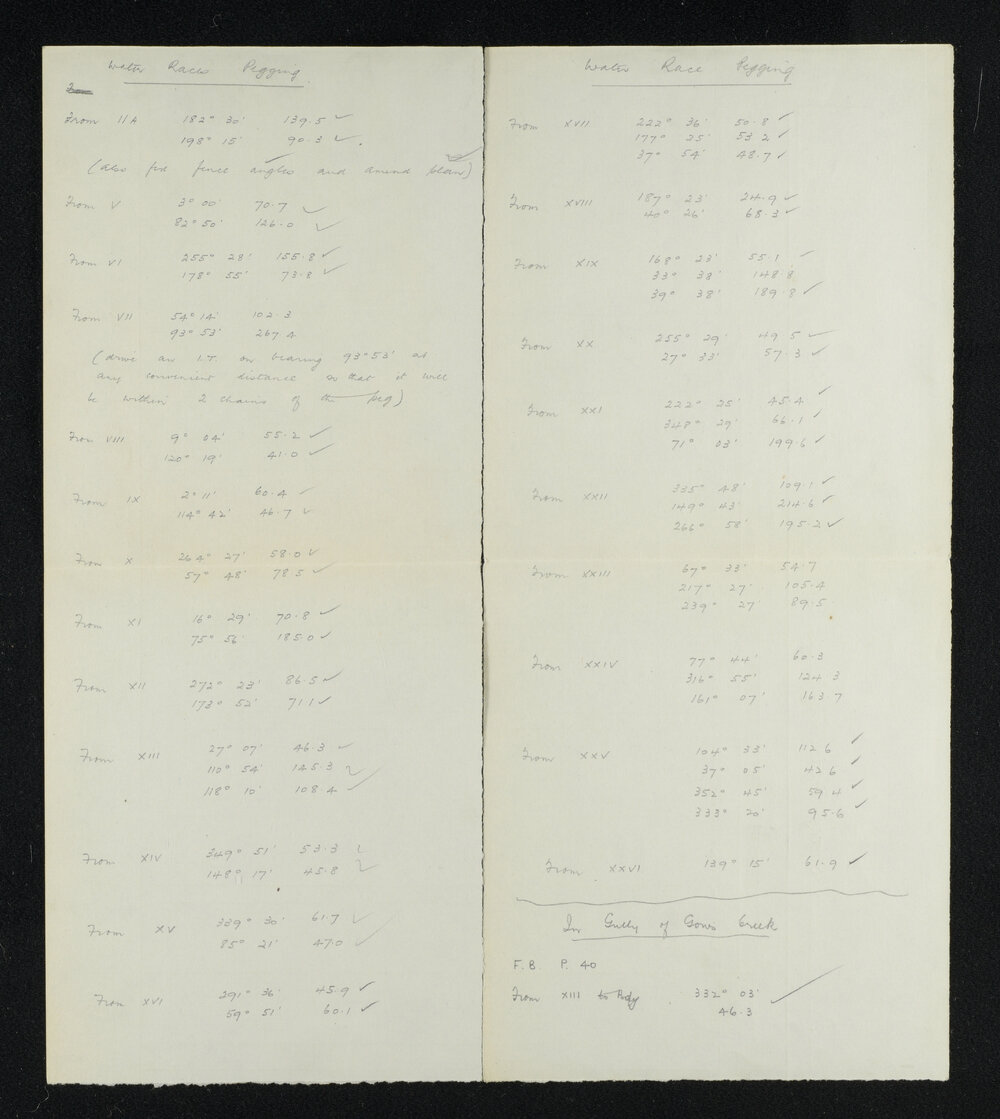 Water Races Pegging
From
From IIA 182° 30' 139.5 ✓
198° 15' 90.3 ✓.
(also fix fence angles and amend plan)
From V 3° 00' 70.7 ✓
82° 50' 126.0 ✓
From VI 255° 28' 155.8 ✓
178° 55' 73.8 ✓
From VII 54° 14' 102.3
93° 53' 267.4
(drive an I.T. on bearing 93° 53' at
any convenient distance so that it will
be within 2 chains of the peg)
From VIII 9° 04' 55.2 ✓
120° 19' 41.0 ✓
From IX 2° 11' 60.4 ✓
114° 42' 46.7 ✓
From X 264° 27' 58.0 ✓
57° 48' 78.5 ✓
From XI 16° 29' 70.8 ✓
75° 56' 185.0 ✓
From XII 272° 23' 86.5 ✓
173° 52' 71.1 ✓
From XIII 27° 07' 46.3 ✓
110° 54' 145.3 ✓
118° 10' 108.4 ✓
From XIV 349° 51' 53.3 ✓
148° 17' 45.8 ✓
From XV 339° 30' 61.7 ✓
85° 21' 47.0 ✓
From XVI 291° 36' 45.9 ✓
59° 51' 60.1 ✓
Water Race Pegging
From XVII 222° 36' 50.8 ✓
177° 25' 53.2 ✓
37° 54' 48.7 ✓
From XVIII 187° 23' 24.9 ✓
40° 26' 68.3 ✓
From XIX 168° 23' 55.1 ✓
33° 38' 148.8
39° 38' 189.8 ✓
From XX 255° 29' 49.5 ✓
27° 33' 57.3 ✓
From XXI 222° 25' 45.4 ✓
348° 29' 66.1 ✓
71° 03' 199.6 ✓
From XXII 335° 48' 109.1 ✓
149° 43' 214.6 ✓
266° 58' 195.2 ✓
From XXIII 67° 33' 54.7
217° 27' 105.4
239° 27' 89.5
From XXIV 77° 44' 60.3
316° 55' 124.3
161° 07' 163.7
From XXV 104° 33' 112.6 ✓
37° 05' 42.6 ✓
352° 45' 59.4 ✓
333° 20' 95.6 ✓
From XXVI 139° 15' 61.9 ✓
In Gully of Gows Creek
F.B. P. 40
From XIII to Bdy 332° 03' ✓
46.3